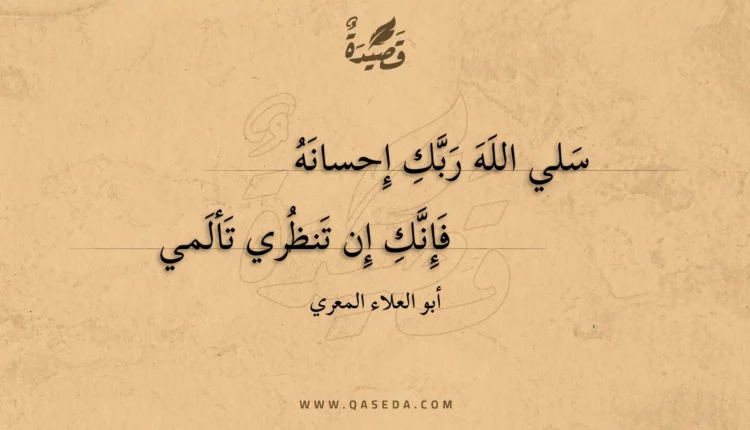 قَصِيْدَةٌ
سَلي اللَهَ رَبَّكِ إِحسانَهُ
فَإِنَّكِ إِن تَنظُري تَألَمي
أبو العلاء المعري
WWW.QASEDA.COM